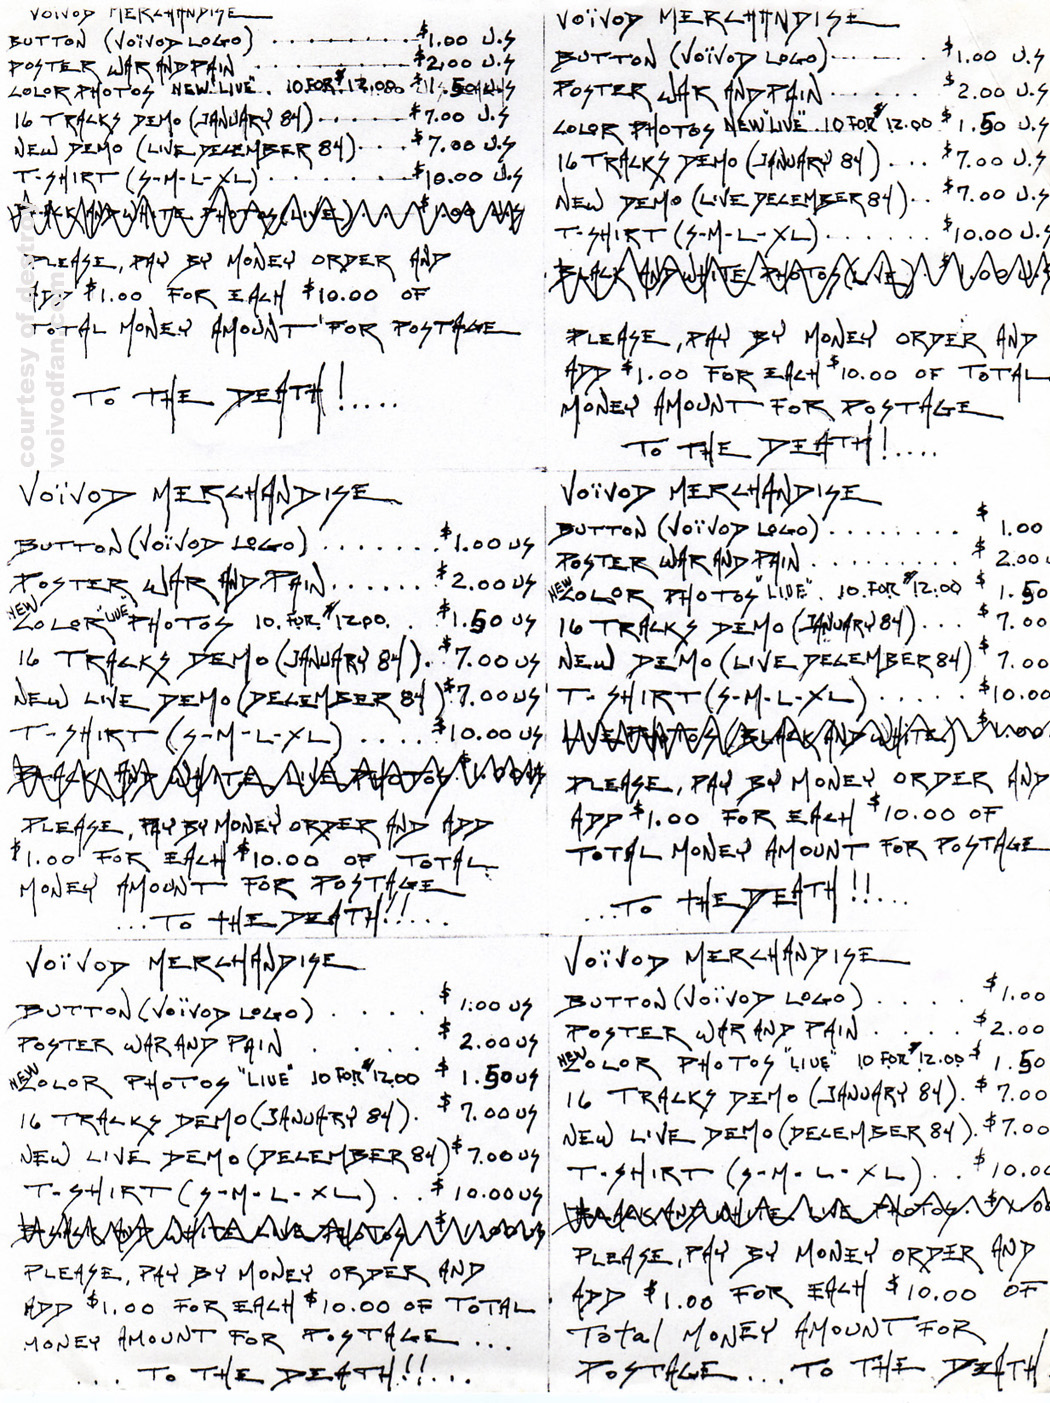 VOÏVOD MERCHANDISE
BUTTON (VOÏVOD LOGO) ............ $1.00 U.S
POSTER WAR AND PAIN ............ $2.00 U.S
COLOR PHOTOS NEW "LIVE". 10 FOR $12.00 $1.50
16 TRACKS DEMO (JANUARY 84) ........ $7.00 U.S
NEW DEMO (LIVE DECEMBER 84) ..... $7.00 U.S
T-SHIRT (S-M-L-XL) ............ $10.00 U.S
BLACK AND WHITE PHOTOS (LIVE) $1.00 U.S
PLEASE, PAY BY MONEY ORDER AND
ADD $1.00 FOR EACH $10.00 OF
TOTAL MONEY AMOUNT FOR POSTAGE
TO THE DEATH!.....
courtesy of
voivodfan.com
VOÏVOD MERCHANDISE
BUTTON (VOÏVOD LOGO)........ $1.00 U.S
POSTER WAR AND PAIN ...... $2.00 U.S
COLOR PHOTOS NEW "LIVE" 10 FOR $12.00 $1.50 U.S
16 TRACKS DEMO (JANUARY 84) ... $7.00 U.S
NEW DEMO (LIVE DECEMBER 84).. $7.00 U.S
T-SHIRT (S-M-L-XL)...... $10.00 U.S
BLACK AND WHITE PHOTOS (LIVE) $1.00 U.S
PLEASE, PAY BY MONEY ORDER AND
ADD $1.00 FOR EACH $10.00 OF TOTAL
MONEY AMOUNT FOR POSTAGE
TO THE DEATH!....
VOÏVOD MERCHANDISE
BUTTON (VOÏVOD LOGO) ....... $1.00 US
POSTER WAR AND PAIN ....... $2.00 US
NEW COLOR "LIVE" PHOTOS 10. FOR. $12.00. . $1.50 US
16 TRACKS DEMO (JANUARY 84). . $7.00 US
NEW LIVE DEMO (DECEMBER 84) $7.00 US
T-SHIRT (S-M-L-XL) ..... $10.00 US
BLACK AND WHITE LIVE PHOTOS. $1.00 US
PLEASE, PAY BY MONEY ORDER AND ADD
$1.00 FOR EACH $10.00 OF TOTAL
MONEY AMOUNT FOR POSTAGE
...TO THE DEATH!!...
VOÏVOD MERCHANDISE
BUTTON (VOÏVOD LOGO)........ $1.00
POSTER WAR AND PAIN ........ $2.00
NEW COLOR PHOTOS "LIVE". 10. FOR $12.00 $1.50
16 TRACKS DEMO (JANUARY 84)... $7.00
NEW DEMO (LIVE DECEMBER 84) $7.00
T-SHIRT (S-M-L-XL) ..... $10.00
LIVE PHOTOS (BLACK AND WHITE) $1.00
PLEASE, PAY BY MONEY ORDER AND
ADD $1.00 FOR EACH $10.00 OF
TOTAL MONEY AMOUNT FOR POSTAGE
...TO THE DEATH!!...
VOÏVOD MERCHANDISE
BUTTON (VOÏVOD LOGO) .... $1.00 US
POSTER WAR AND PAIN ..... $2.00 US
NEW COLOR PHOTOS "LIVE" 10 FOR $12.00 $1.50 US
16 TRACKS DEMO (JANUARY 84). $7.00 US
NEW LIVE DEMO (DECEMBER 84) $7.00 US
T-SHIRT (S-M-L-XL) .. $10.00 US
BLACK AND WHITE LIVE PHOTOS $1.00 US
PLEASE, PAY BY MONEY ORDER AND
ADD $1.00 FOR EACH $10.00 OF TOTAL
MONEY AMOUNT FOR POSTAGE ...
... TO THE DEATH!!...
VOÏVOD MERCHANDISE
BUTTON (VOÏVOD LOGO) .... $1.00
POSTER WAR AND PAIN .... $2.00
NEW COLOR PHOTOS "LIVE" 10 FOR $12.00 $1.50
16 TRACKS DEMO (JANUARY 84). $7.00
NEW LIVE DEMO (DECEMBER 84). $7.00
T-SHIRT (S-M-L-XL) .. $10.00
BLACK AND WHITE LIVE PHOTOS. $1.00
PLEASE, PAY BY MONEY ORDER AND
ADD $1.00 FOR EACH $10.00 OF
Total MONEY AMOUNT FOR
POSTAGE... TO THE DEATH